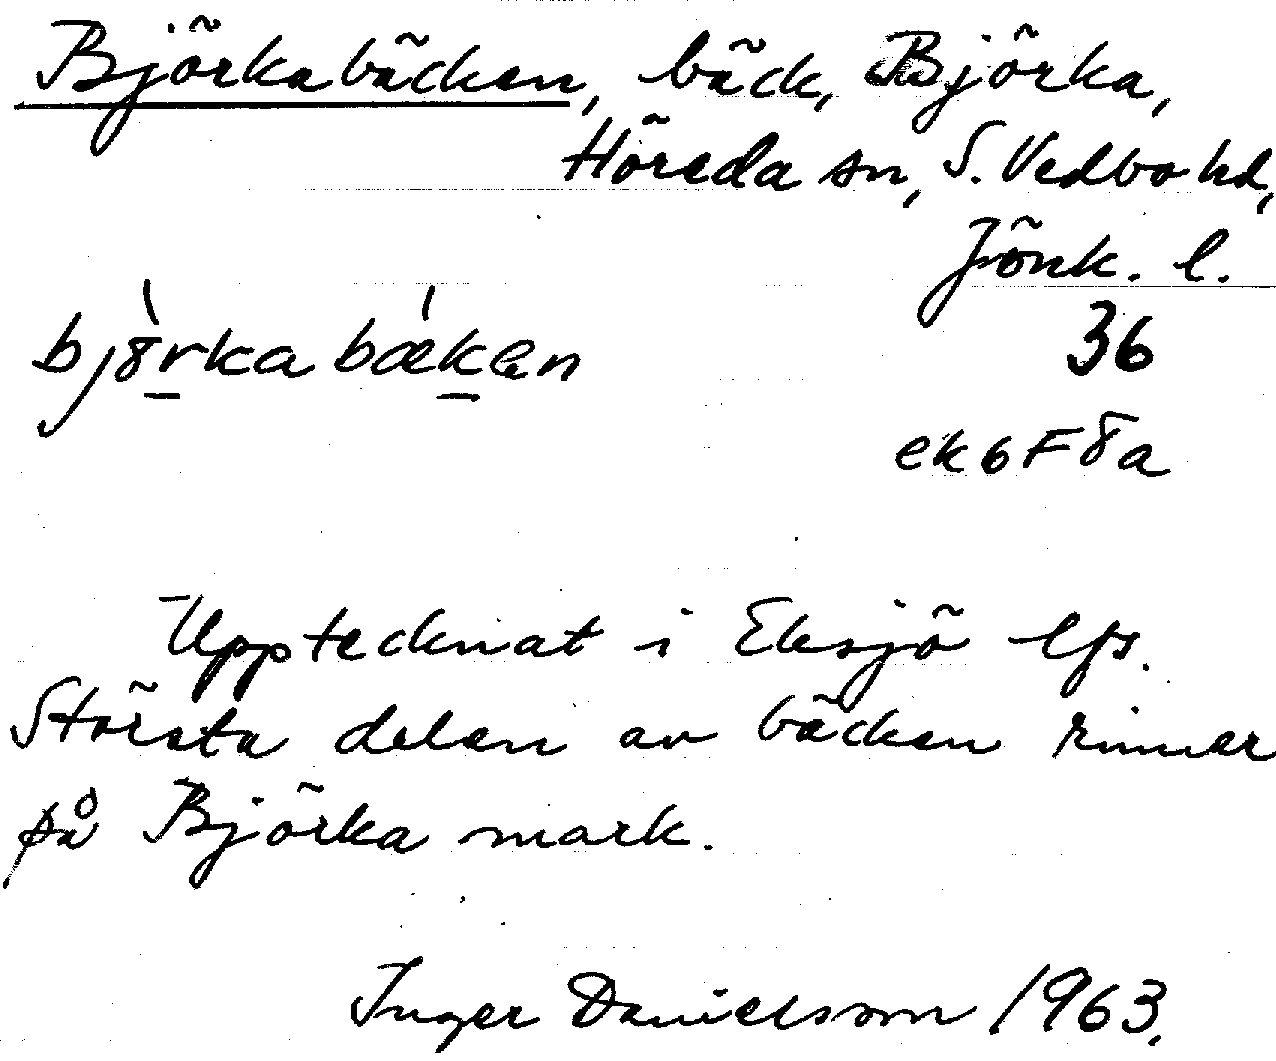 Björkabäcken, bäck, Björka,
Höreda sn, S. Vedbo hd,
Jönk. l.
bjòrkabǽken
36
ek 6 F 8 a
Upptecknat i Eksjö lfs.
Största delen av bäcken rinner
på Björka mark.
Inger Danielsson 1963.